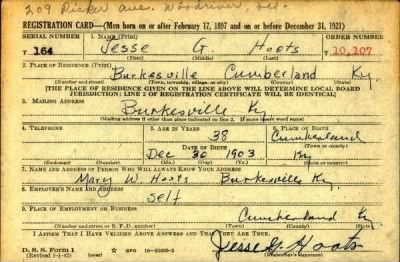 209 Picker ave. Woodriver, Ill.
REGISTRATION CARD—(Men born on or after February 17, 1897 and on or before December 31, 1921)
SERIAL NUMBER 1. NAME (Print) ORDER NUMBER
T 164 Jesse G. Hoots T 10,207
(First) (Middle) (Last)
2. PLACE OF RESIDENCE (Print)
Burkesville Cumberland Ky.
(Number and street) (Town, township, village, or city) (County) (State)
[THE PLACE OF RESIDENCE GIVEN ON THE LINE ABOVE WILL DETERMINE LOCAL BOARD
JURISDICTION; LINE 2 OF REGISTRATION CERTIFICATE WILL BE IDENTICAL]
3. MAILING ADDRESS
Burkesville Ky
[Mailing address if other than place indicated on line 2. If same insert word same]
4. TELEPHONE 5. AGE IN YEARS 6. PLACE OF BIRTH
38 Cumberland
DATE OF BIRTH (Town or county)
Dec 30 1903 Ky
(Exchange) (Number) (Mo.) (Day) (Yr.) (State or country)
7. NAME AND ADDRESS OF PERSON WHO WILL ALWAYS KNOW YOUR ADDRESS
Mary W. Hoots Burkesville Ky
8. EMPLOYER'S NAME AND ADDRESS
Self
9. PLACE OF EMPLOYMENT OR BUSINESS
Cumberland Ky
(Number and street or R. F. D. number) (Town) (County) (State)
I AFFIRM THAT I HAVE VERIFIED ABOVE ANSWERS AND THAT THEY ARE TRUE.
D. S. S. Form 1
(Revised 1-1-42) (over) GPO Jesse G. Hoots